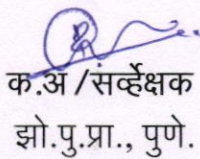 क.अ /सर्व्हेक्षक
झो.पु.प्रा., पुणे.